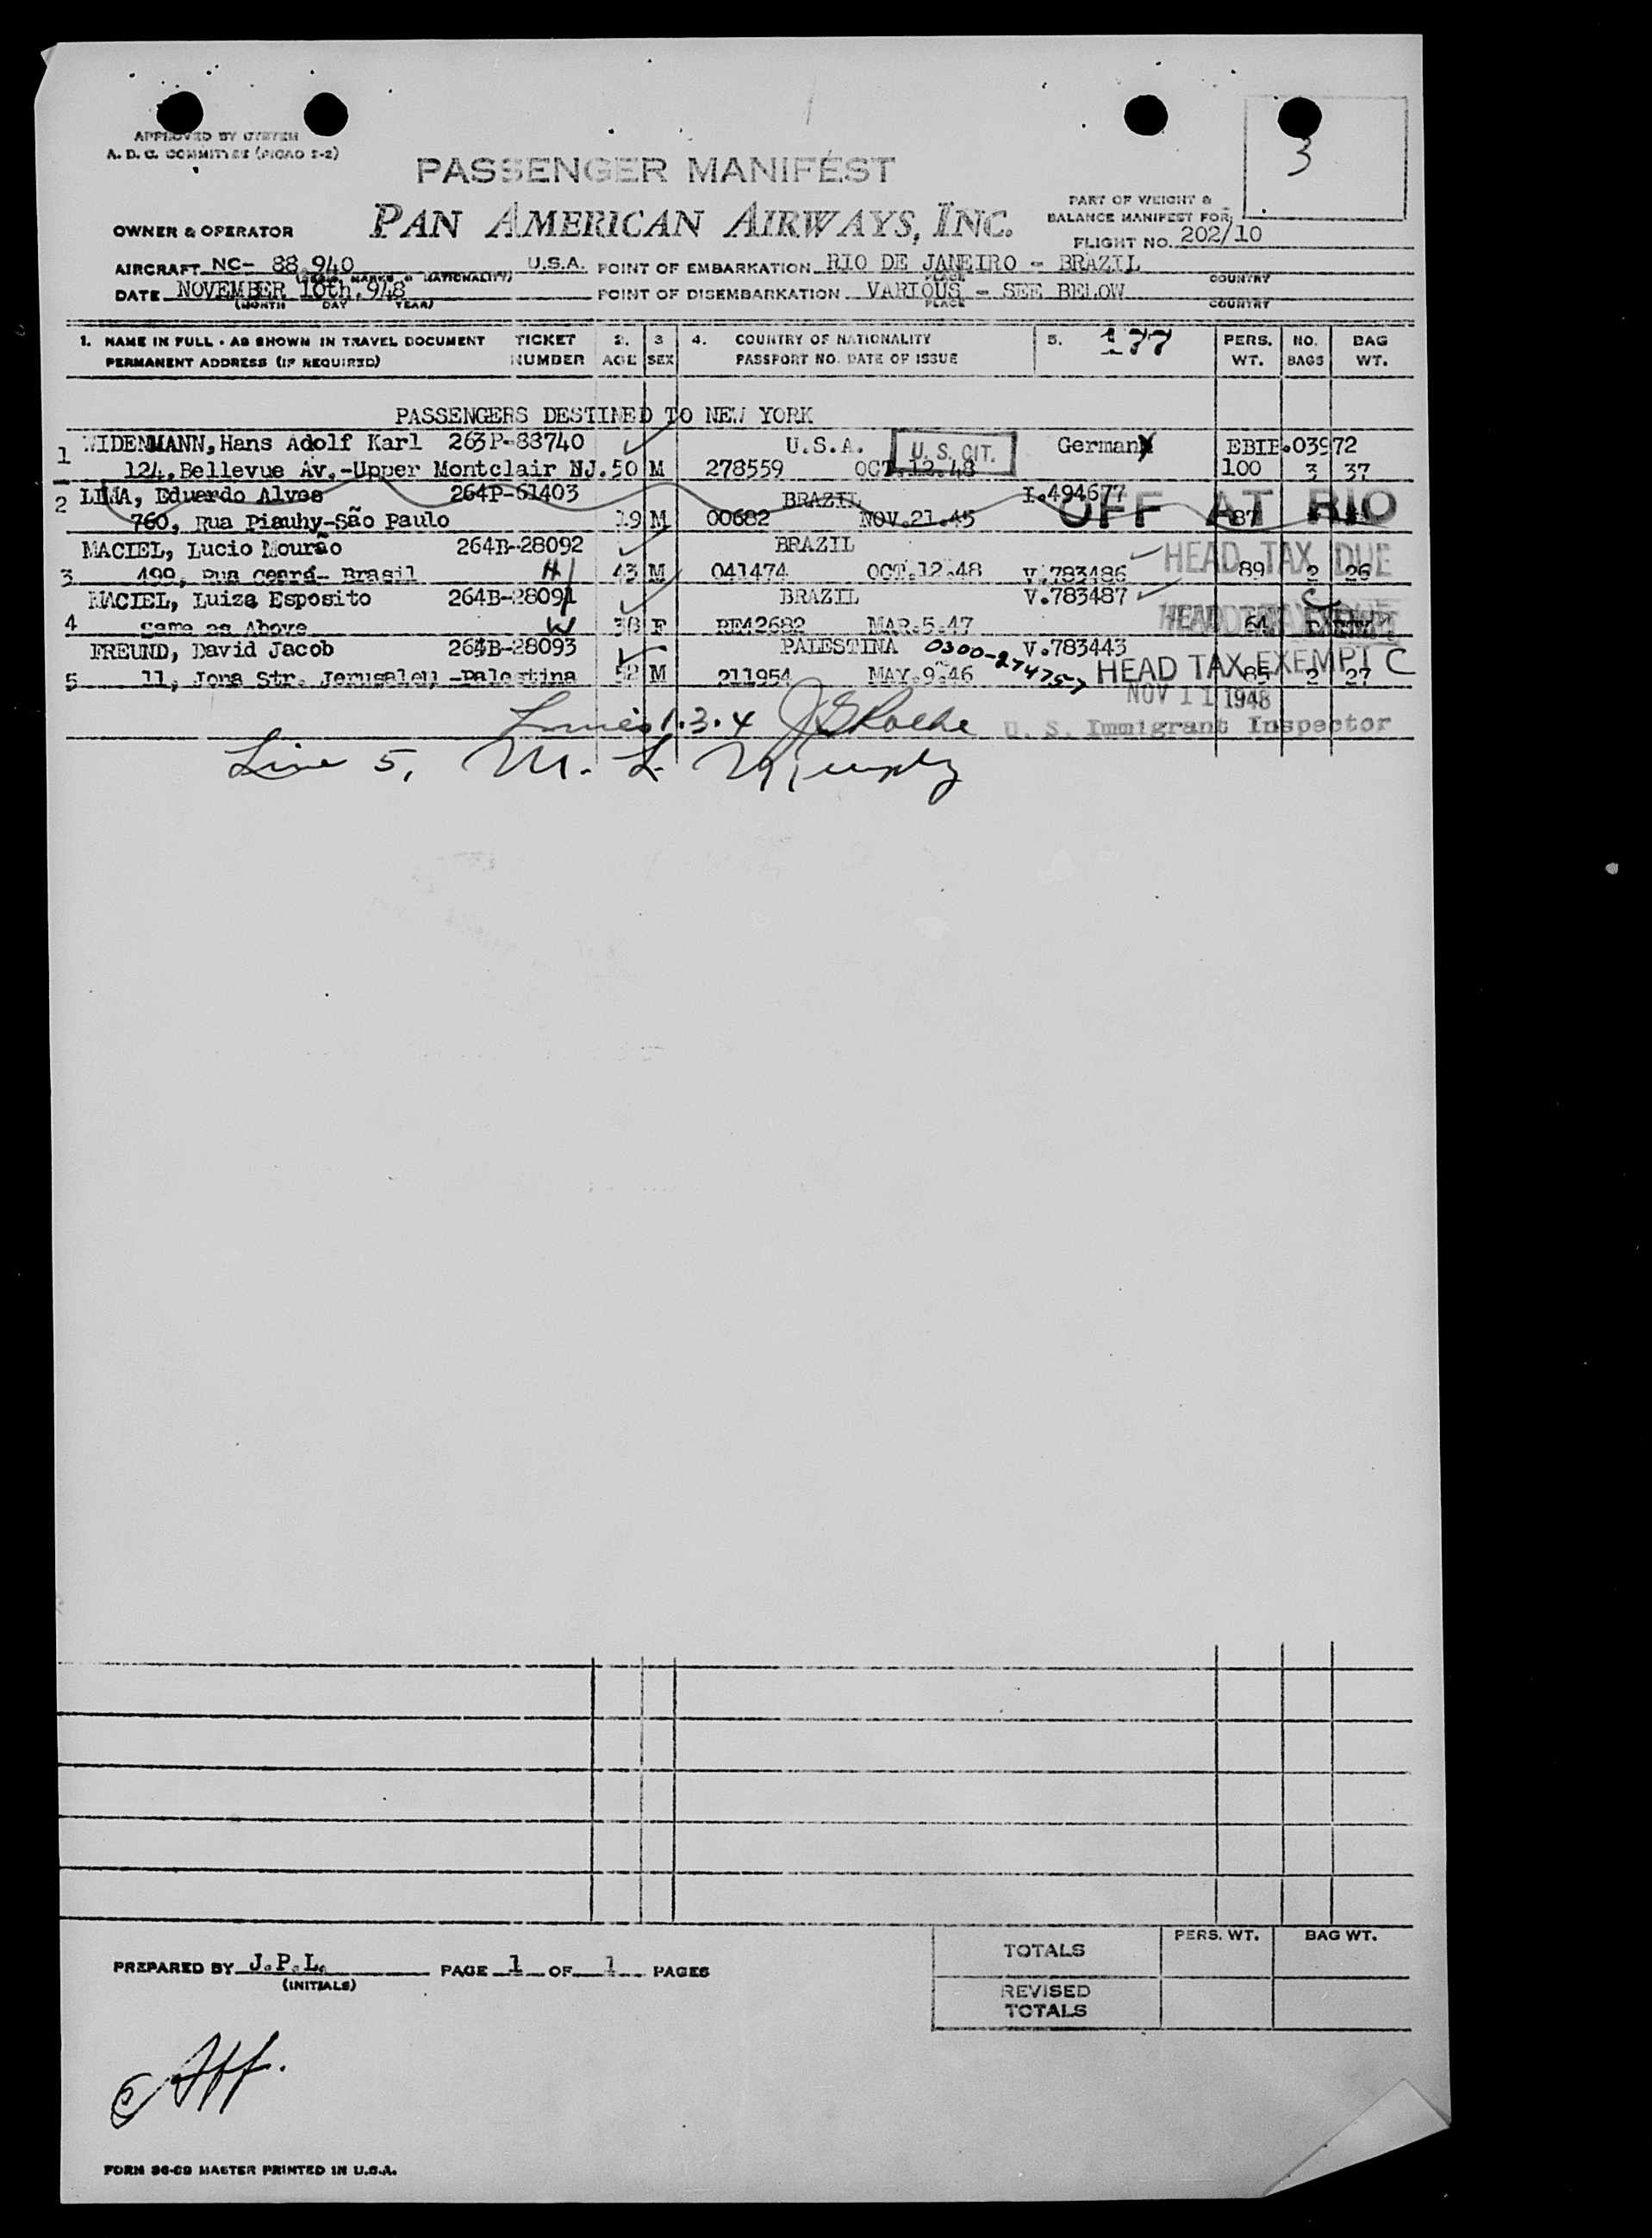 APPROVED BY SYSTEM
A. D. C. COMMITTEE (PICAO S-2)
3
PASSENGER MANIFEST
PART OF WEIGHT &
BALANCE MANIFEST FOR:
OWNER & OPERATOR PAN AMERICAN AIRWAYS, INC.
FLIGHT NO. 202/10
AIRCRAFT NC- 88.940 U.S.A. POINT OF EMBARKATION RIO DE JANEIRO - BRAZIL
MARKS & NATIONALITY) PLACE COUNTRY
DATE NOVEMBER 10th.948 POINT OF DISEMBARKATION VARIOUS - SEE BELOW
(MONTH DAY YEAR) PLACE COUNTRY
1. NAME IN FULL - AS SHOWN IN TRAVEL DOCUMENT TICKET 2. 3 4. COUNTRY OF NATIONALITY 5. 177 PERS. NO. BAG
PERMANENT ADDRESS (IF REQUIRED) NUMBER AGE SEX PASSPORT NO. DATE OF ISSUE WT. BAGS WT.
PASSENGERS DESTINED TO NEW YORK
WIDENMANN, Hans Adolf Karl 263P-88740 U.S.A. U. S. CIT. Germany EBIE.03972
1 124, Bellevue Av.-Upper Montclair NJ. 50 M 278559 OCT.12.48 100 3 37
2 LIMA, Eduardo Alves 264P-61403 BRAZIL I.494677 OFF AT RIO
760, Rua Piauhy-São Paulo 19 M 00682 NOV.21.45 87
MACIEL, Lucio Mourão 264B-28092 BRAZIL HEAD TAX DUE
3 499, Rua Ceará- Brasil H 43 M 041474 OCT.12.48 V.783486 89 2 26
MACIEL, Luiza Esposito 264B-28091 BRAZIL V.783487 C
4 same as Above W 38 F RE42682 MAR.5.47 HEAD TAX 64
FREUND, David Jacob 264B-28093 PALESTINA 0300-27475-7 V.783443
5 11, Jona Str. Jerusalem -Palestina 52 M 211954 MAY.9.46 HEAD TAX EXEMPT C 85 2 27
NOV 11 1948
Lines 1.3.4 J G Roche U. S. Immigrant Inspector
Line 5, M. L. Murphy
PREPARED BY J.P.L. PAGE 1 OF 1 PAGES
(INITIALS)
PERS. WT. BAG WT.
TOTALS
REVISED
TOTALS
FORM 36-C9 MASTER PRINTED IN U.S.A.